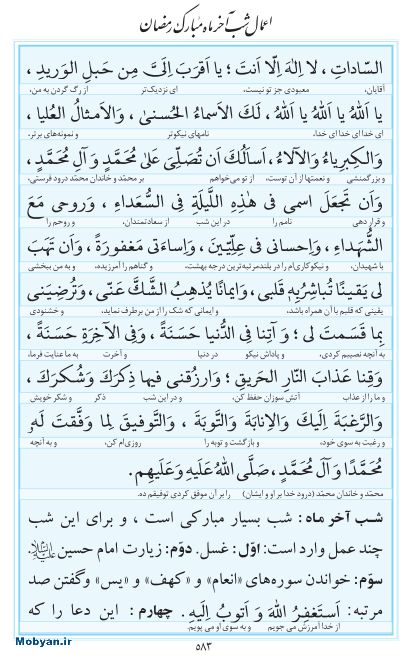 اعمال شب آخر ماه مبارک رمضان
السّاداتِ ، لا اِلٰهَ اِلّا اَنتَ ؛ یا اَقرَبَ اِلَیَّ مِن حَبلِ الوَریدِ ،
آقایان، معبودی جز تو نیست، ای نزدیک‌تر از رگ گردن به من،
یا اَللهُ یا اَللهُ یا اَللهُ ، لَکَ الاَسماءُ الحُسنیٰ ، وَالاَمثالُ العُلیا ،
ای خدا ای خدا ای خدا، نامهای نیکوتر و نمونه‌های برتر،
وَالکِبرِیاءُ وَالآلاءُ ، اَساَلُکَ اَن تُصَلِّیَ عَلیٰ مُحَمَّدٍ وَ آلِ مُحَمَّدٍ ،
و بزرگمنشی و نعمتها از آن توست، از تو می‌خواهم بر محمّد و خاندان محمّد درود فرستی،
وَ اَن تَجعَلَ اسمی فی هٰذِهِ اللَّیلَةِ فِی السُّعَداءِ ، وَروحی مَعَ
و قرار دهی نامم را در این شب از سعادتمندان، و روحم را
الشُّهَداءِ ، وَاِحسانی فی عِلِّیّینَ ، وَاِساءَتی مَغفورَةً ، وَ اَن تَهَبَ
با شهیدان، و نیکوکاری‌ام را در بلندمرتبه‌ترین درجه بهشت، و گناهم را آمرزیده، و به من ببخشی
لی یَقینًا تُباشِرُ بِهِ قَلبی ، وَایمانًا یُذهِبُ الشَّکَّ عَنّی ، وَتُرضِیَنی
یقینی که قلبم با آن همراه باشد، و ایمانی که شک را از من برطرف نماید، و خشنودی
بِما قَسَمتَ لی ؛ وَ آتِنا فِی الدُّنیا حَسَنَةً ، وَفِی الآخِرَةِ حَسَنَةً ،
به آنچه نصیبم کردی، و پاداش نیکو در دنیا و آخرت به ما عنایت فرما،
وَقِنا عَذابَ النّارِ الحَریقِ ؛ وَارزُقنی فیها ذِکرَکَ وَشُکرَکَ ،
و ما را از عذاب آتش سوزان حفظ کن، و در این شب ذکر و شکر خویش
وَالرَّغبَةَ اِلَیکَ وَالاِنابَةَ وَالتَّوبَةَ ، وَالتَّوفیقَ لِما وَفَّقتَ لَهُ
و رغبت به سوی خود، و بازگشت و توبه را روزی‌ام کن، و به آنچه
مُحَمَّدًا وَ آلَ مُحَمَّدٍ ، صَلَّی اللهُ عَلَیهِ وَ عَلَیهِم.
محمّد و خاندان محمّد (درود خدا بر او و ایشان) را بر آن موفق کردی توفیقم ده.
شب آخر ماه: شب بسیار مبارکی است ، و برای این شب
چند عمل وارد است: اوّل: غسل. دوّم: زیارت امام حسین علیه‌السلام
سوّم: خواندن سوره‌های «انعام» و «کهف» و «یس» وگفتن صد
مرتبه: اَستَغفِرُ اللهَ وَ اَتوبُ اِلَیهِ. چهارم: این دعا را که
از خدا آمرزش می جویم و به سوی او می پویم.
۵۸۳
Mobyan.ir